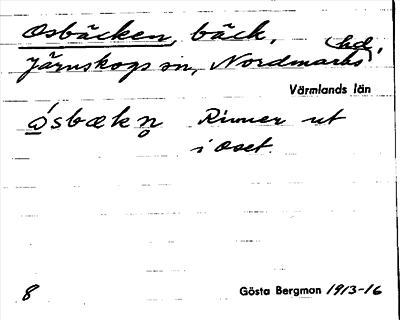 Osbäcken, bäck,
Järnskogs sn, Nordmarks hd,
Värmlands län
ó̱sbækn̥ Rinner ut
i Oset.
8 Gösta Bergman 1913-16